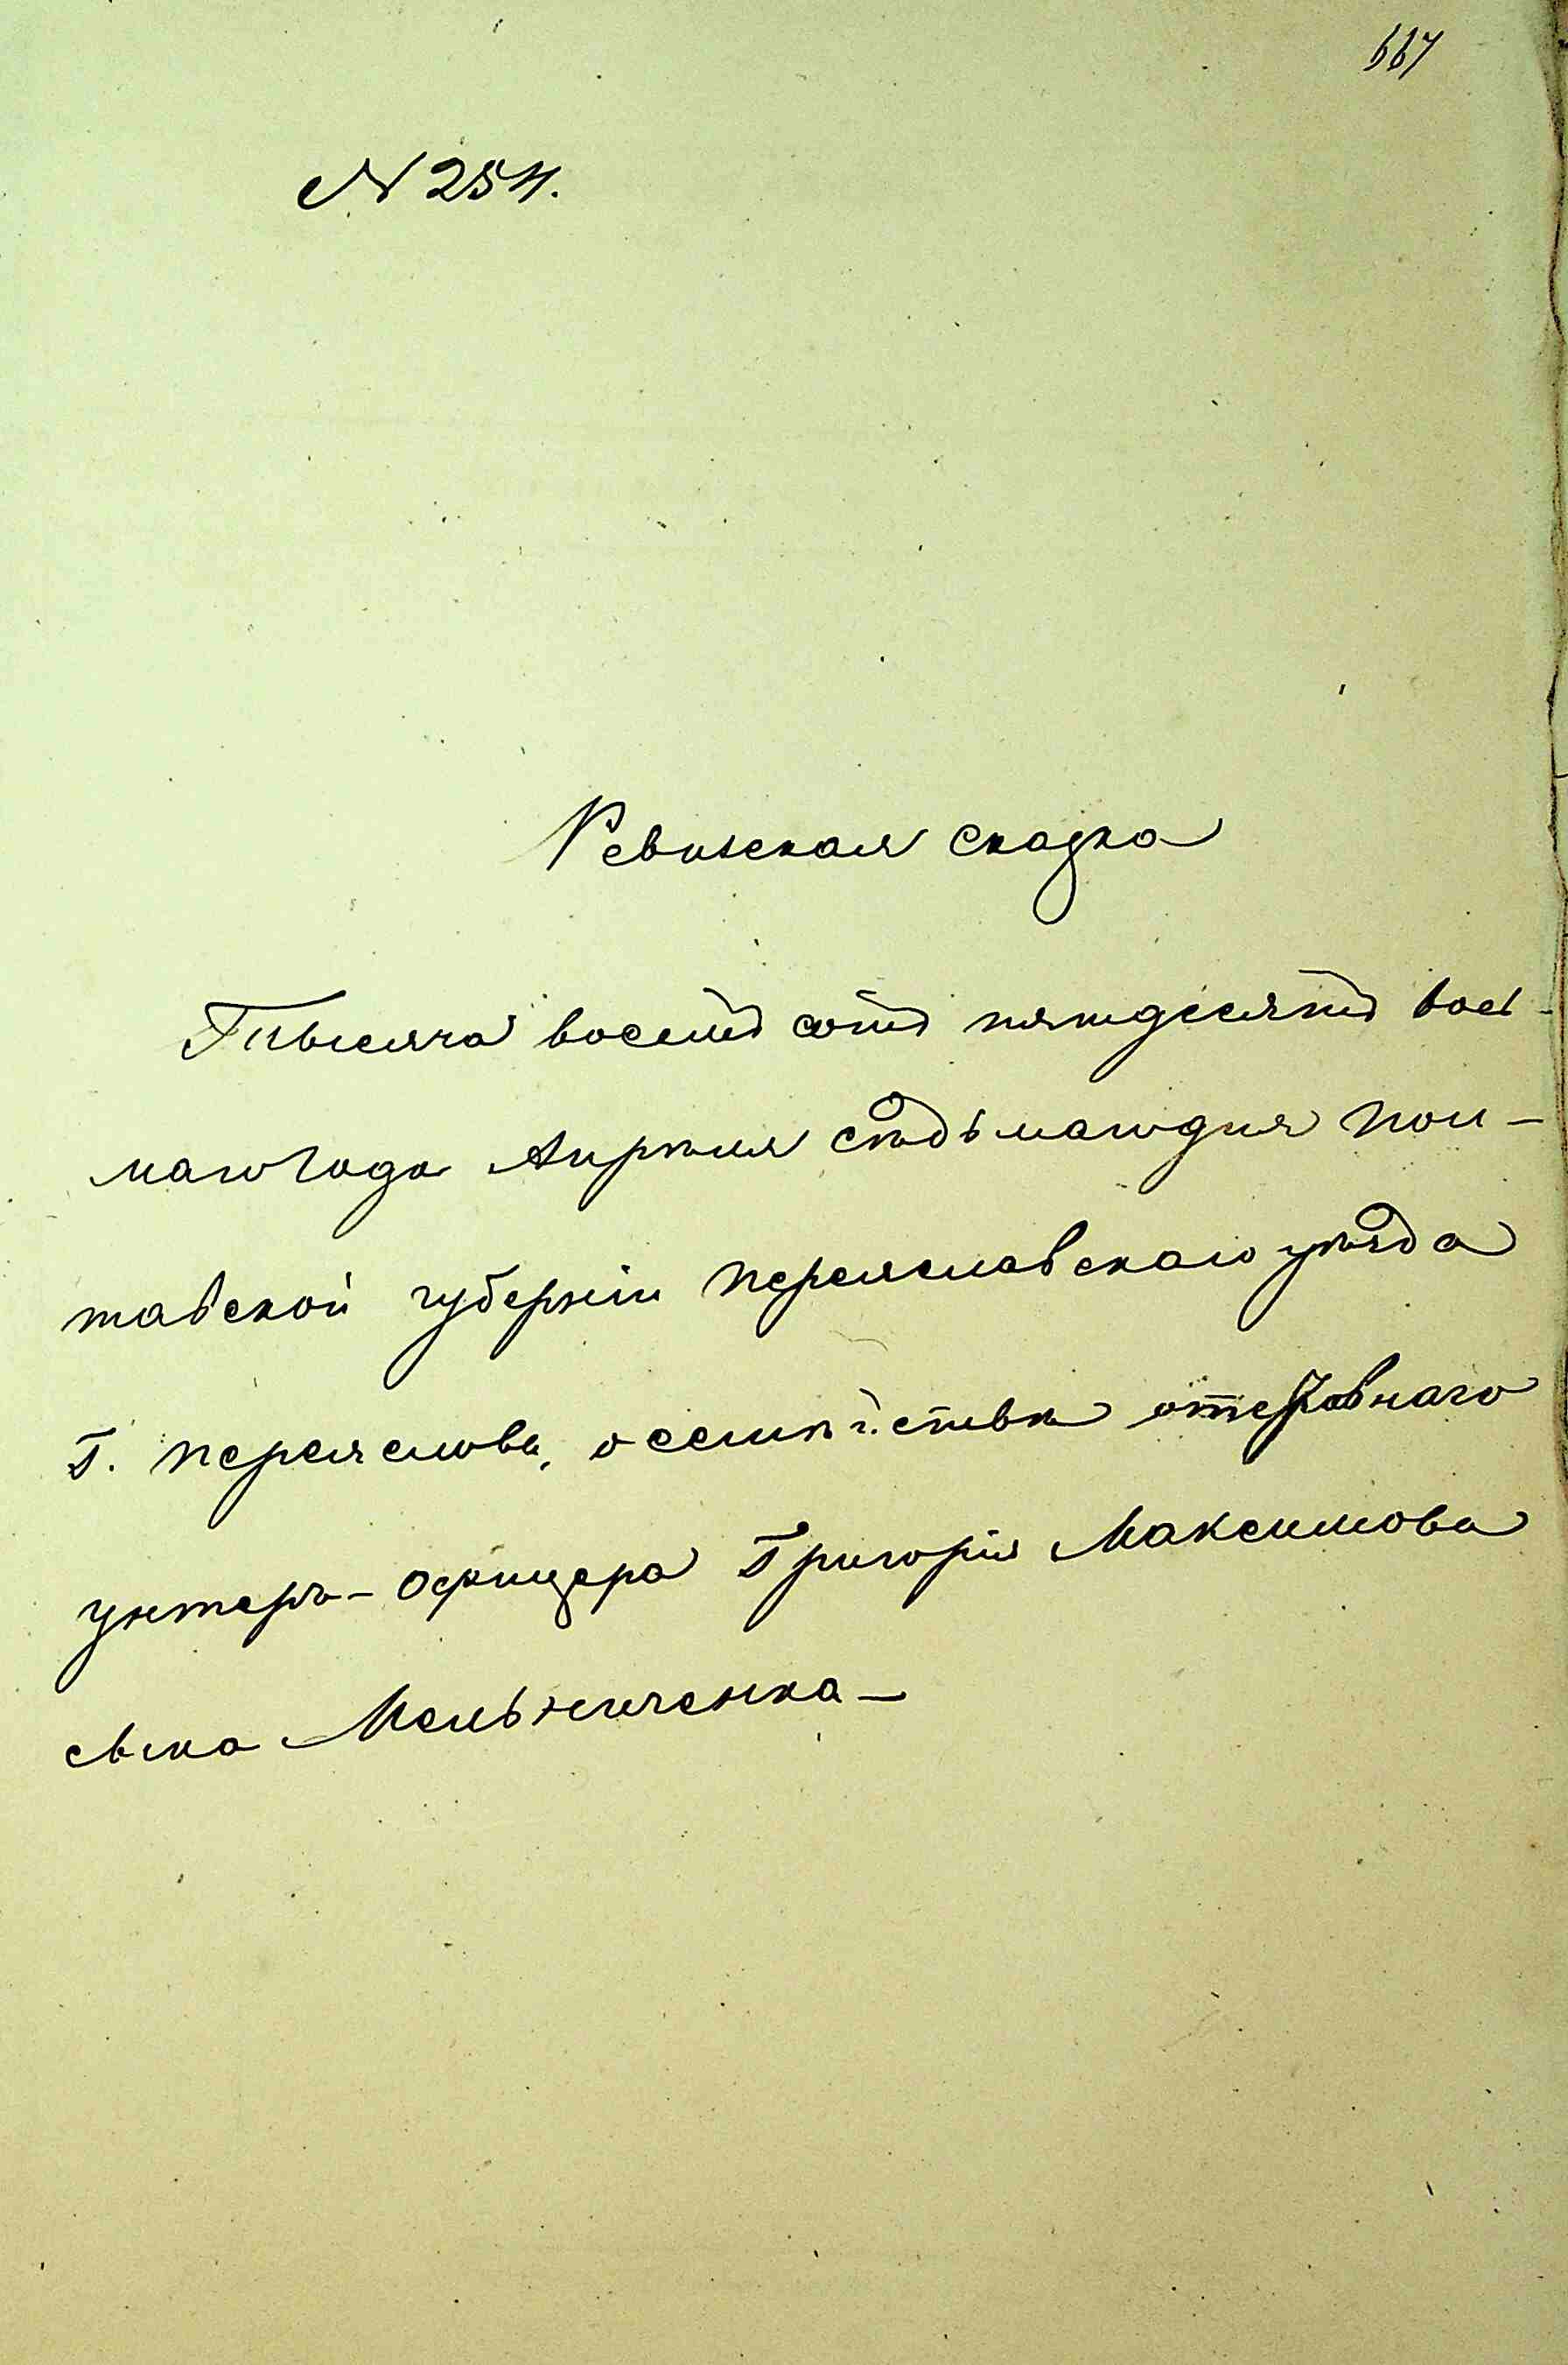 667
N 254.
Ревизская сказка
Тысяча восемь сотъ пятьдесятъ вось-
маго года Апрѣля сѣдьмаго дня Пол-
тавской губерніи Переяславскаго уѣзда
Г. Переяслова, о семѣйствѣ отставнаго
унтеръ-офицера Григорія Максимова
сына Мельниченка-